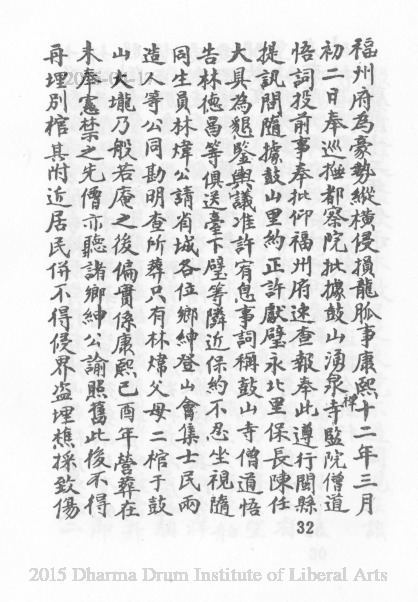 福州府為豪勢縱橫侵損龍脈事康熙十二年三月
初二日奉巡撫都察院批據鼓山湧泉禪寺監院僧道
悟詞投前事奉批仰福州府速查報奉此遵行閩縣
提訊間隨據鼓山里約正許獻璧永北里保長陳任
大具為懇鑒輿議准許宥息事詞稱鼓山寺僧道悟
告林德昌等俱送臺下璧等隣近保約不忍坐視隨
同生員林煒公請省城各位鄉紳登山會集士民兩
造人等公同勘明查所葬只有林煒父母二棺于鼓
山大壠乃般若庵之後偏實係康熙己酉年營葬在
未奉憲禁之先僧亦聽諸鄉紳公諭照舊此後不得
再埋別棺其附近居民併不得侵界盜埋樵採致傷
32
2015 Dharma Drum Institute of Liberal Arts